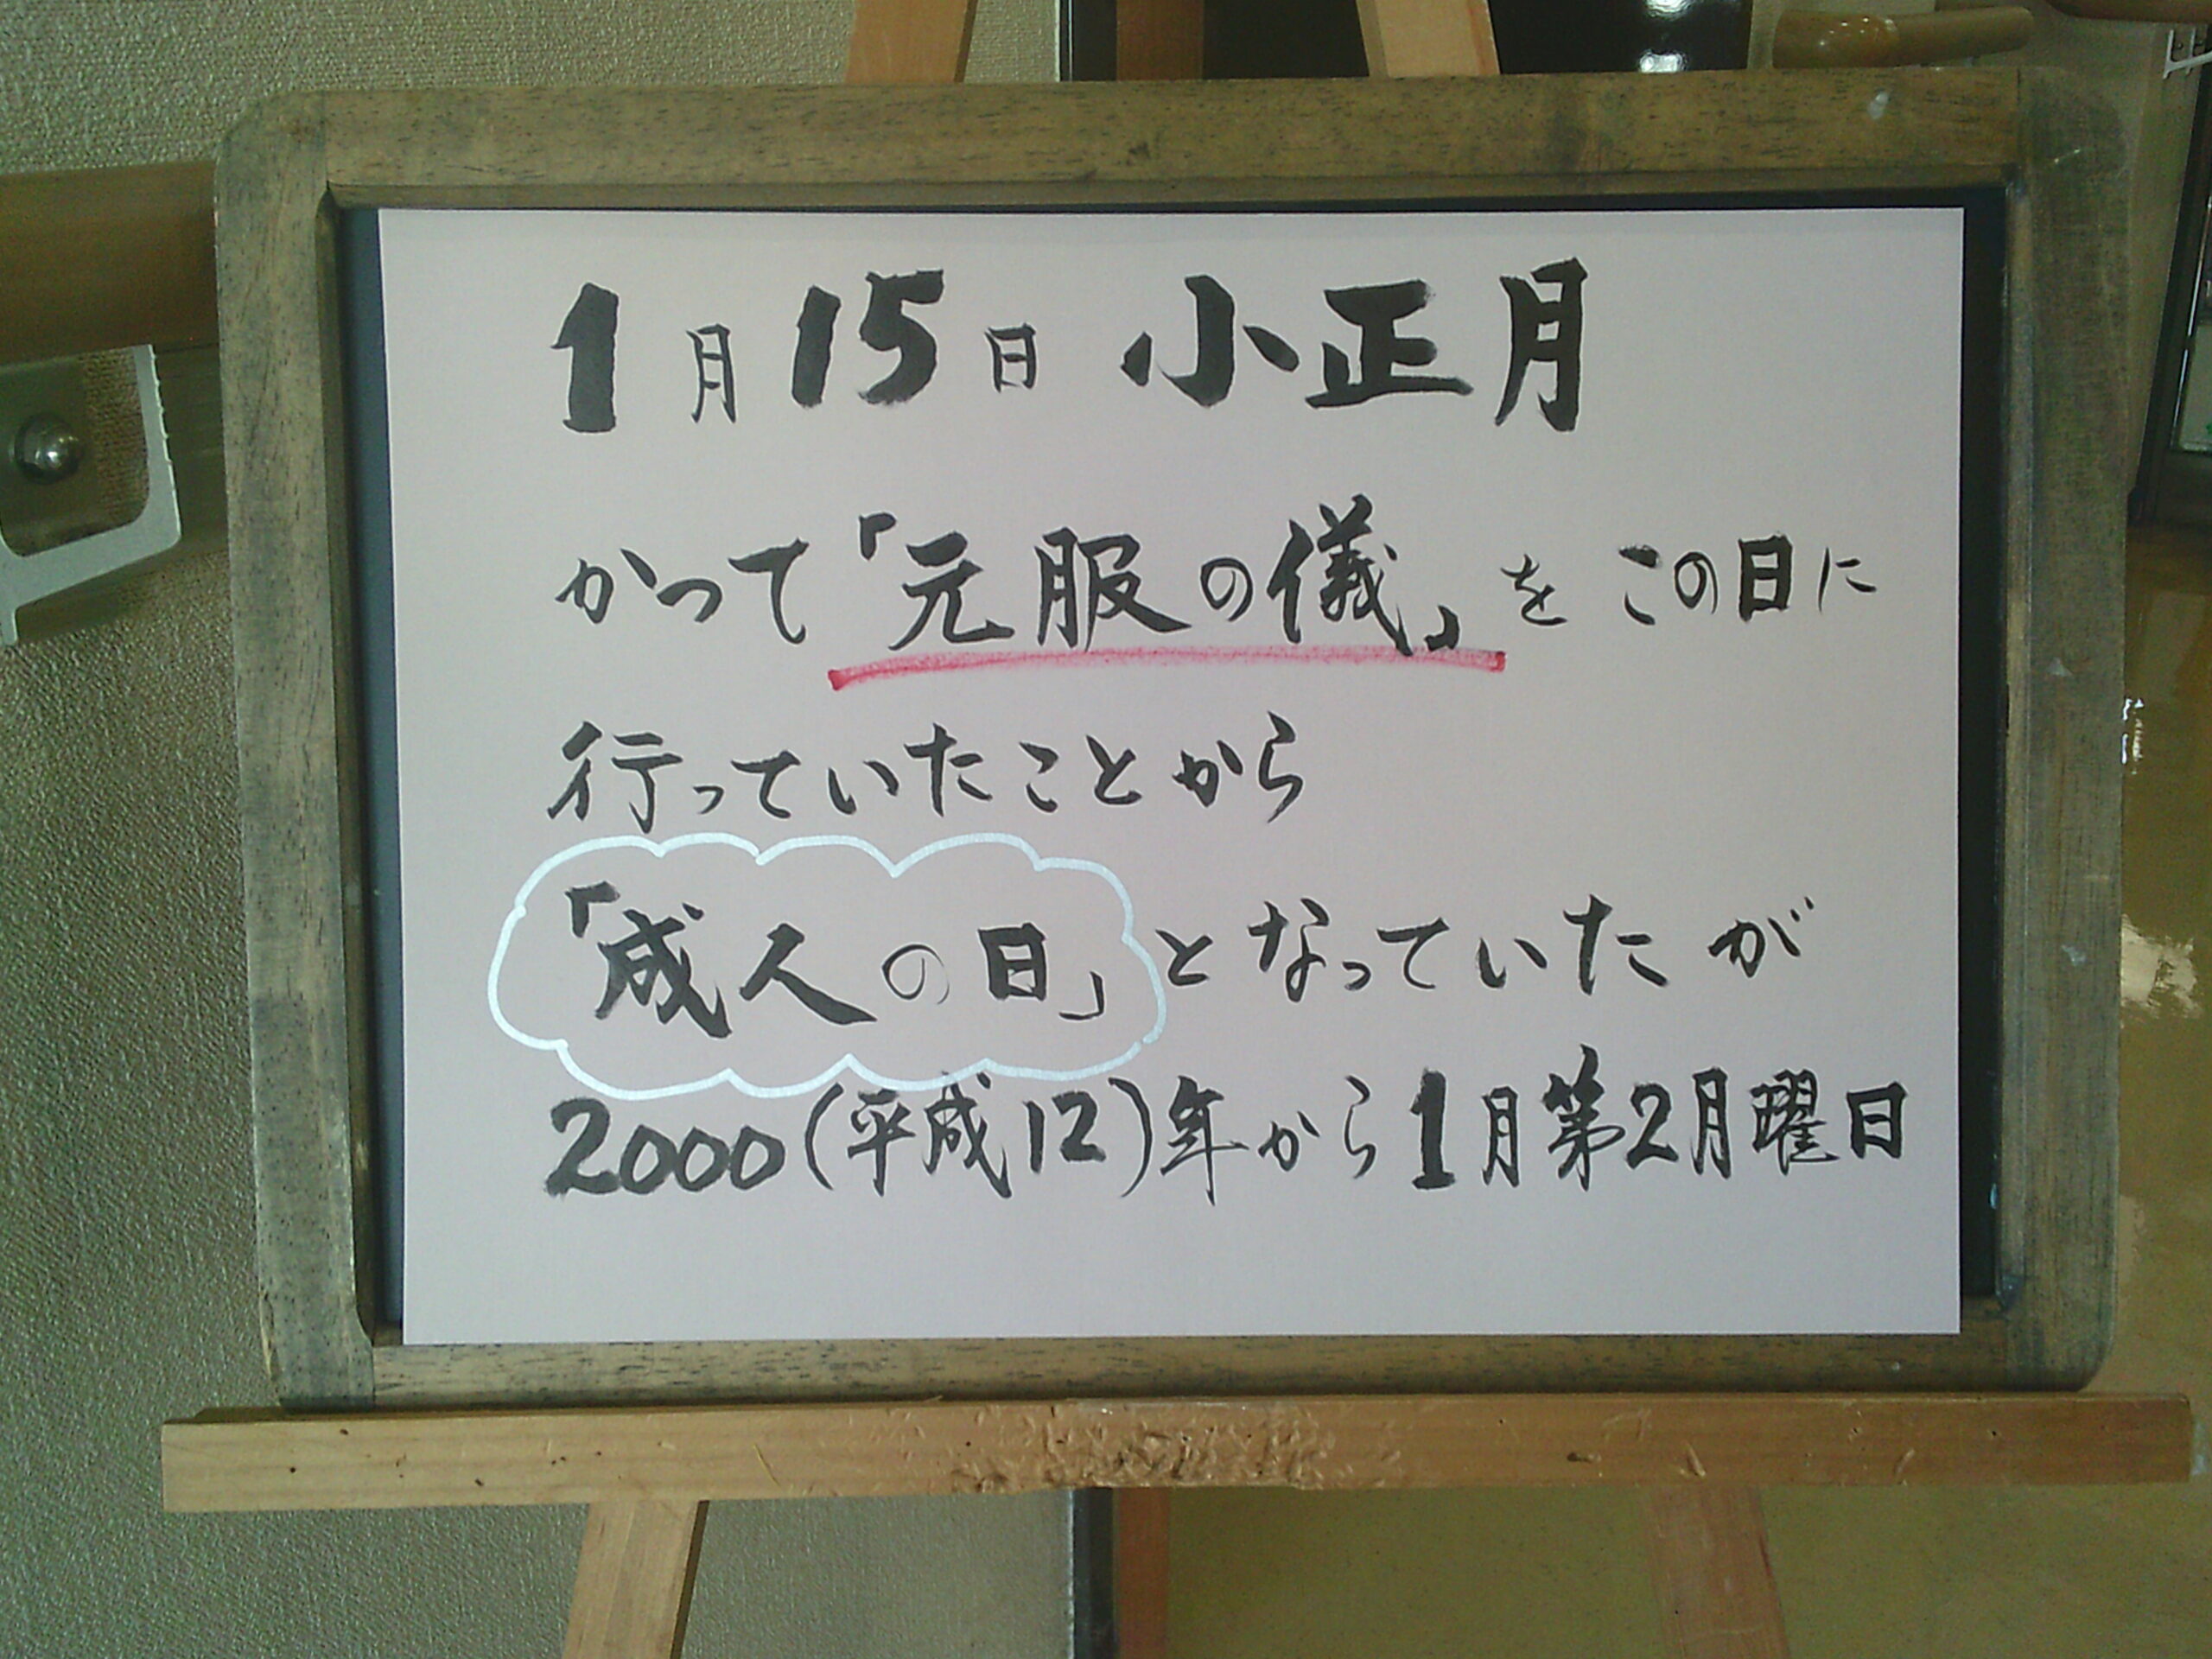 1月15日 小正月
かつて「元服の儀」をこの日に
行っていたことから
「成人の日」となっていたが
2000(平成12)年から1月第2月曜日